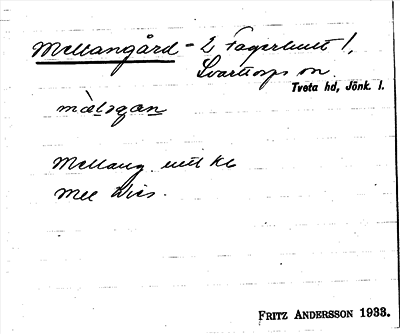 Mellangård - 2 Fagerhult 1,
Svarttorps sn.
Tveta hd, Jönk. l.
mälagan
Mellang
Mel
FRITZ ANDERSSON 1933.